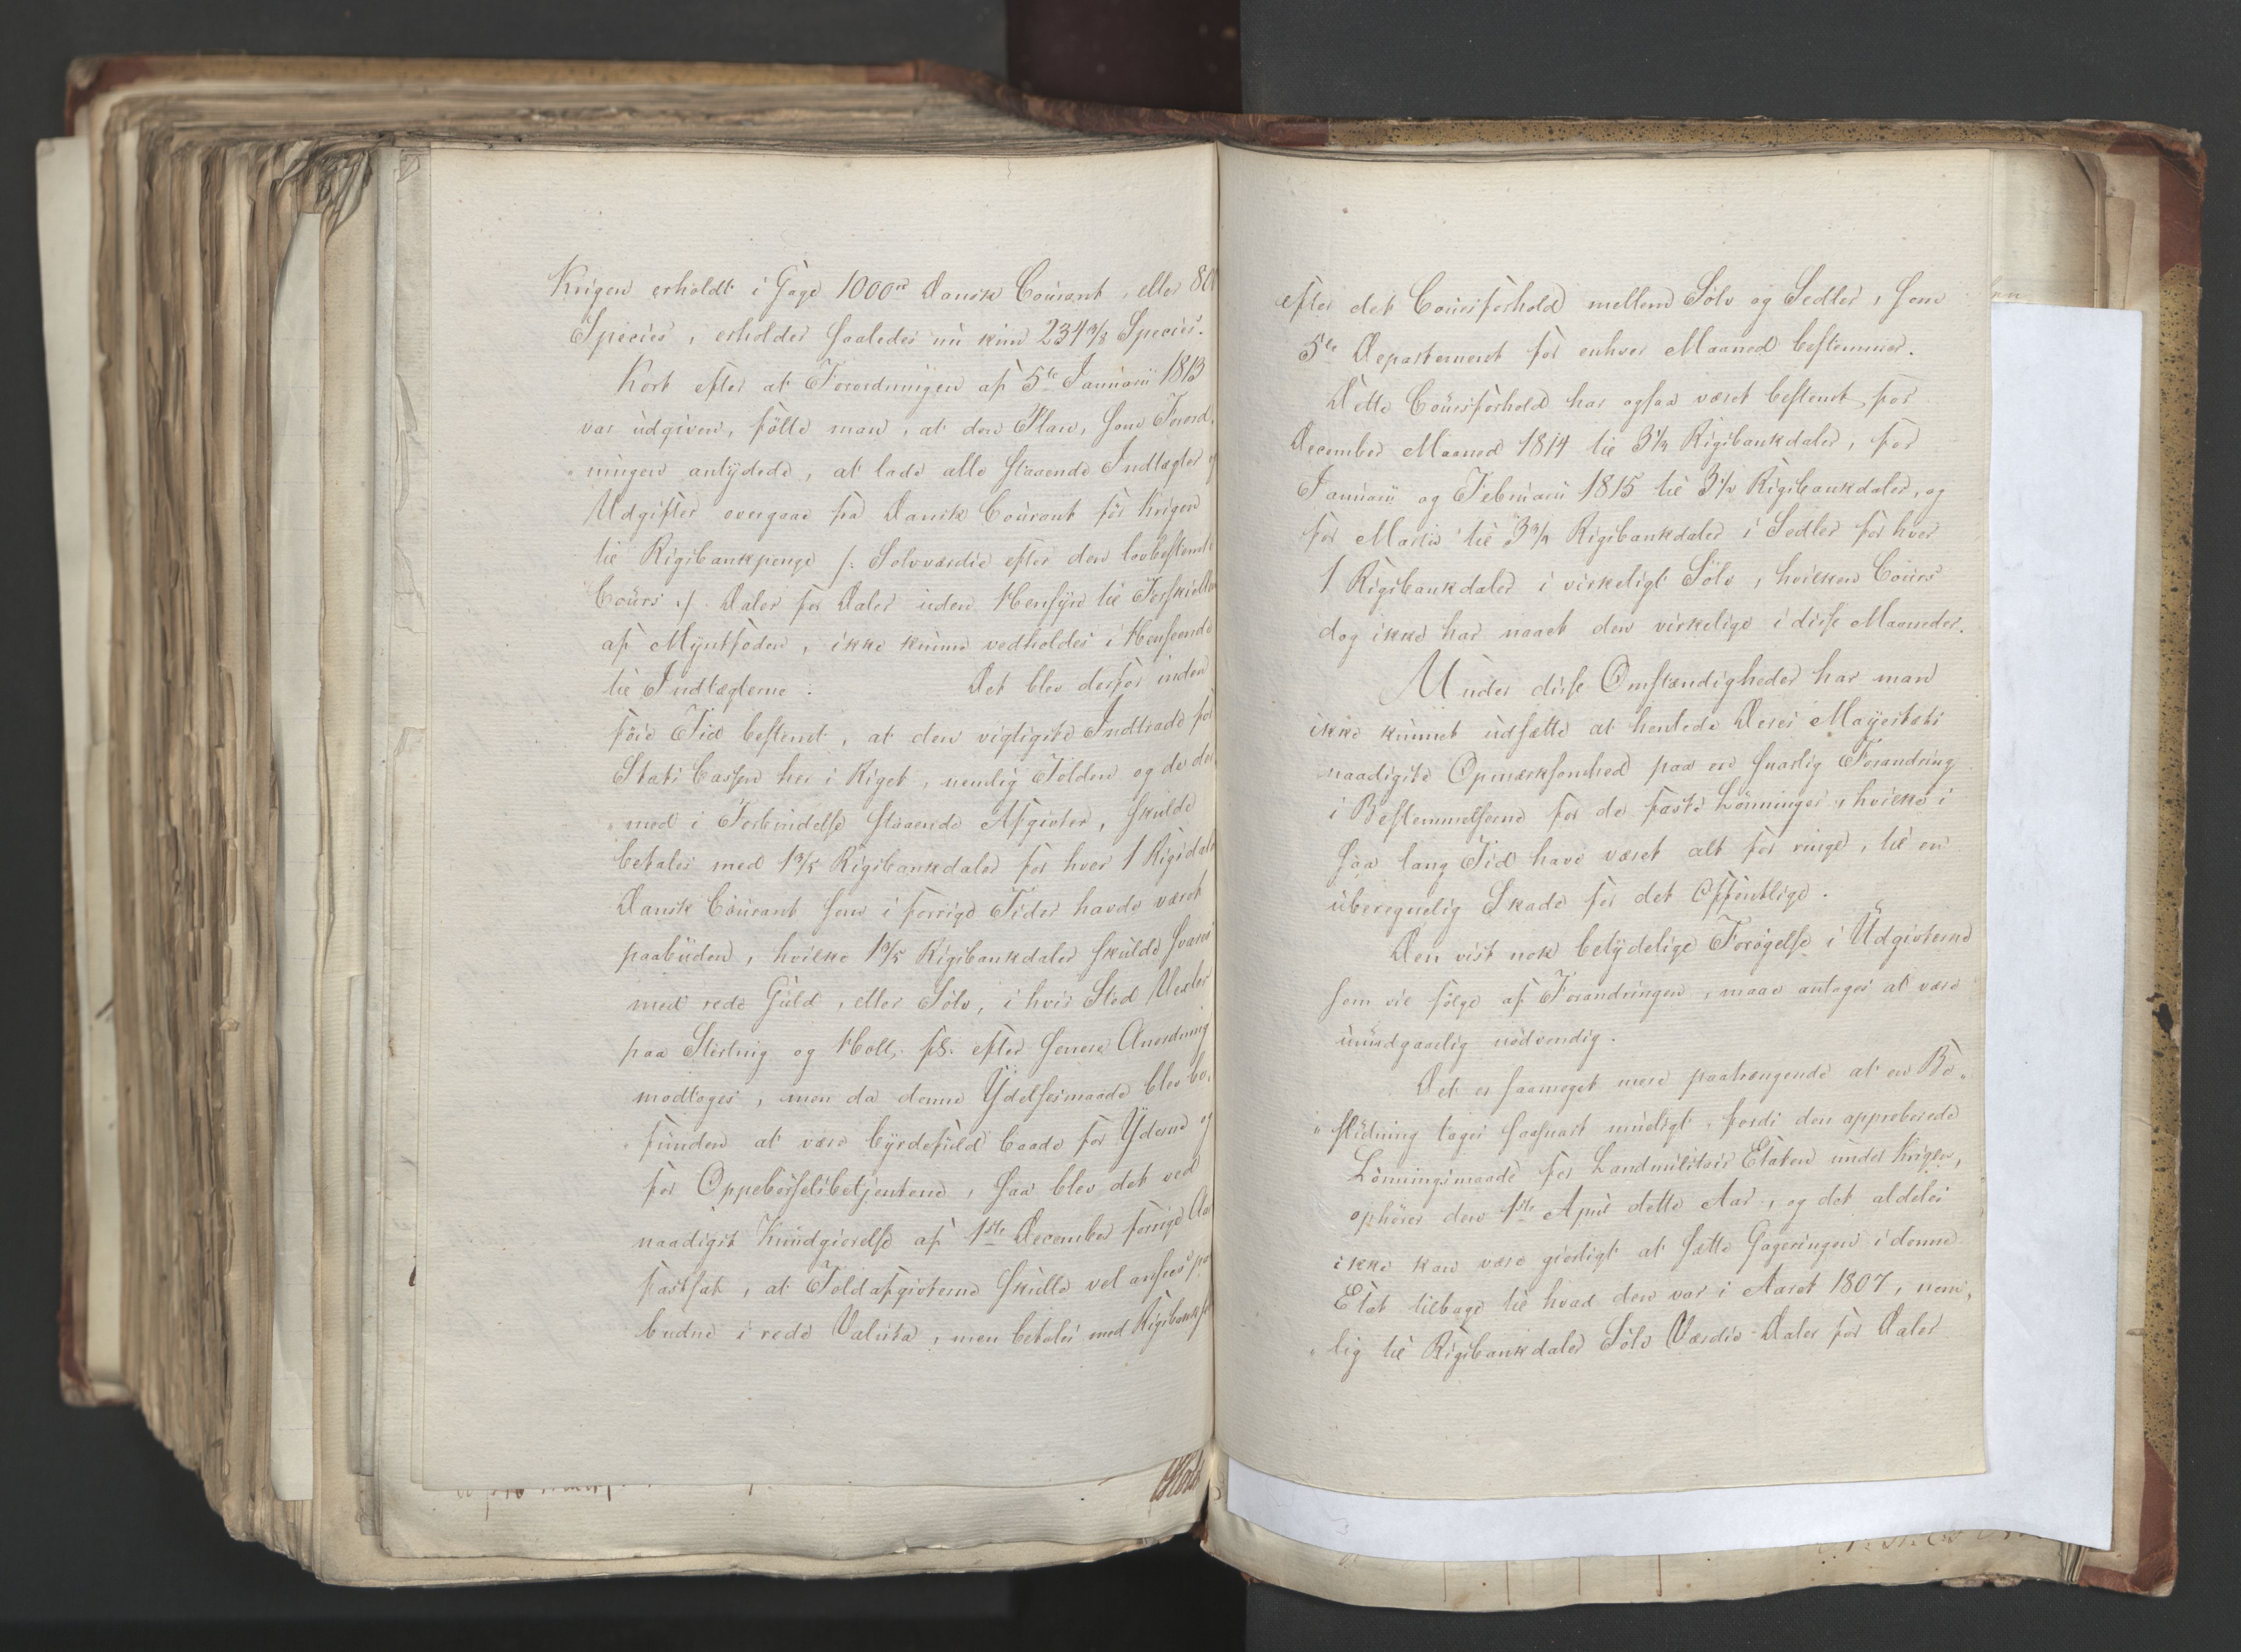 Krigen erholdt i Gage 1000rd Dansk Courant, eller 800
Species, erholder saaledes nu kun 234 3/8 Species.
Kort efter at Forordningen af 5te Januarii 1813
var udgiven, fölte man, at den Plan, som Forord,
ningen antydede, at lade alle staaende Indtægter og
Udgifter overgaae fra Dansk Courant för Krigen
til Rigsbankpenge /: Sölvværdie efter den lovbestemte
Cours :/ Daler for Daler uden Hensyn til Forskiellen
af Myntfoden, ikke kunne vedholdes i Henseende
til Indtægterne: Det blev derfor inden
föie Tid bestemt, at den vigtigste Indtrade for
Stats Cassen her i Riget, nemlig Tolden og de der
med i Forbindelse staaende Afgivter, skulde
betales med 1 3/5 Rigsbankdaler for hver 1 Rigsdaler
Dansk Courant som i forrige Tider havde været
paabuden, hvilke 1 3/5 Rigsbankdaler skulde svares
med rede Guld, eller Sölv, i hvis Sted Vexler
paa Sterling og Holl. fl. efter senere Anordning
modtoges, men da denne Ydelsesmaade blev be,
funden at være byrdefuld baade for Yderne og
for Oppebörselsbetjentene, saa blev det ved
naadigst Kundgiörelse af 1ste December forrige Aar
fastsat, at Toldafgivterne skulle vel ansees paa
budne i rede Valuta, men betales med Rigsbanksedler
efter det Coursforhold mellem Sölv og Sedler, som
5te Departement for enhver Maaned bestemmer.
Dette Coursforhold har ogsaa været bestemt for
December Maaned 1814 til 3 1/4 Rigsbankdaler, for
Januarii og Februarii 1815 til 3 1/2 Rigsbankdaler, og
for Martii til 3 3/4 Rigsbankdaler i Sedler for hver
1 Rigsbankdaler i virkeligt Sölv, hvilken Cours
dog ikke har naaet den virkelige i disse Maaneder.
Under disse Omstændigheder har man
ikke kunnet udsætte at henlede Deres Majestæts
naadigste Opmærksomhed paa en snarlig Forandring
i Bestemmelserne for de faste Lönninger, hvilke i
saa lang Tid have været alt for ringe, til en
uberegnelig Skade for det Offentlige.
Den vist nok betydelige Forögelse i Udgivterne
som vil fölge af Forandringen, maae antages at være
uundgaaelig nödvendig.
Det er saameget mere paatrængende at en Be,
slutning tages saasnart muligt, fordi den approberede
Lönningsmaade for Landmilitair Etaten under Krigen,
ophörer den 1ste April dette Aar, og det aldeles
ikke kan være giörligt at sætte Gageringen i denne
Etat tilbage til hvad den var i Aaret 1807, nem,
lig til Rigsbankdaler Sölv Værdie Daler for Daler